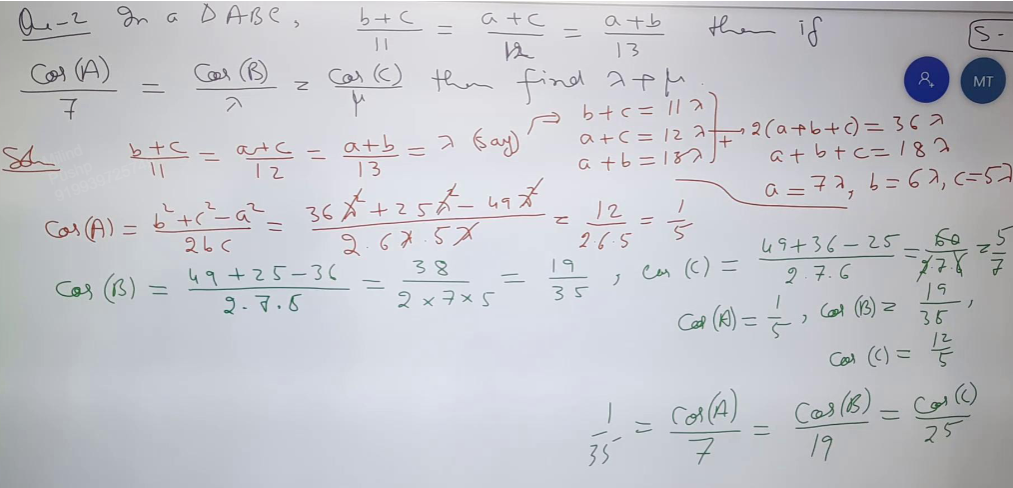 Qu-2 In a ΔABC, b+c/11 = a+c/12 = a+b/13 then if
Cos(A)/7 = Cos(B)/λ = Cos(C)/μ then find λ+μ.
S-
MT
Soln b+c/11 = a+c/12 = a+b/13 = λ (say)
b+c = 11λ
a+c = 12λ
a+b = 13λ
+ → 2(a+b+c) = 36λ
a+b+c = 18λ
a = 7λ, b = 6λ, c = 5λ
Cos(A) = b²+c²-a²/2bc = 36λ²+25λ²-49λ²/2.6λ.5λ = 12/2.6.5 = 1/5
Cos(B) = 49+25-36/2.7.5 = 38/2×7×5 = 19/35, Cos(C) = 49+36-25/2.7.6 = 60/2.7.6 = 5/7
Cos(A) = 1/5, Cos(B) = 19/35,
Cos(C) = 12/5
1/35 = Cos(A)/7 = Cos(B)/19 = Cos(C)/25